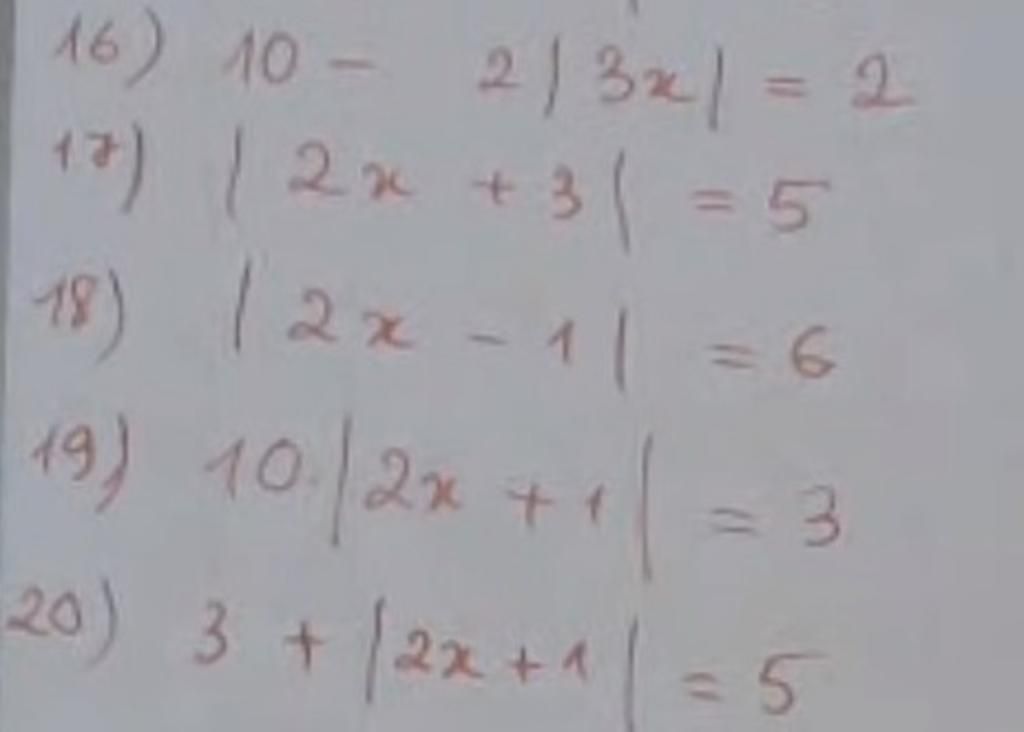 16) 10 - 2|3x| = 2
17) |2x + 3| = 5
18) |2x - 1| = 6
19) 10.|2x + 1| = 3
20) 3 + |2x + 1| = 5